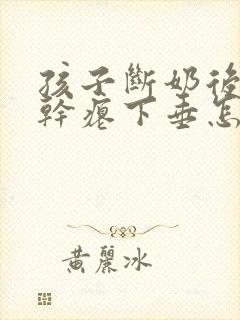 孩子斷奶後
幹癟下垂怎
黃麗冰